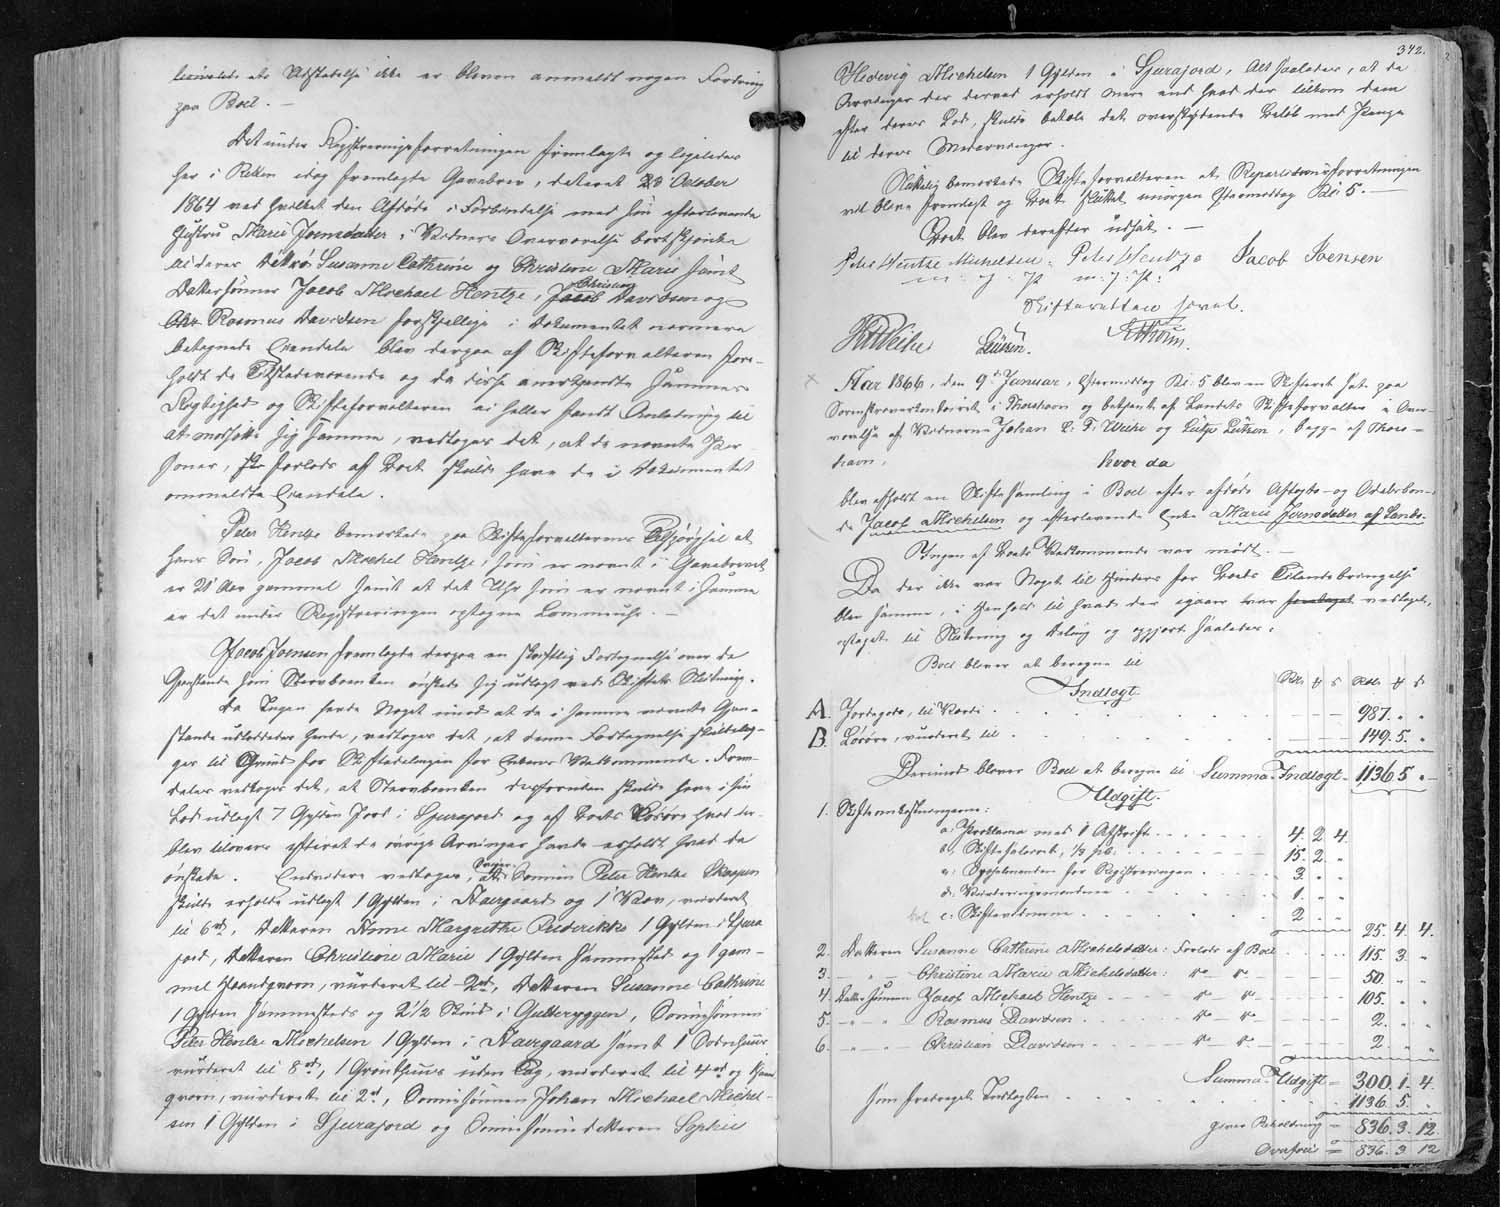 Udstædelse ikke er bleven anmeldt nogen Fordring
paa Boet. —
Det under Registreringsforretningen fremlagte og ligeledes
her i Retten idag fremlagte Gavebrev, dateret 23 October
1864 ved hvilket den Afdøde i Forbindelse med sin efterlevende
Hustru Marie Joensdatter, i Vidners Overværelse bortskjenkede
til deres Døttre Susanne Cathrine og Christine Marie samt
Dattersønner Jacob Michael Hentze, Jacob Christian Davidsen og
Chr. Rasmus Davidsen forskjellige i Dokumentet nærmere
betegnede Gjendele blev derpaa af Skifteforvalteren fore-
holdt de Tilstedeværende og da disse anerkjendte Sammes
Rigtighed og Skifteforvalteren ei heller fandt Anledning til
at modsætte sig Samme, vedtoges det, at de nævnte Per-
soner, forlods af Boet skulde have de i Dokumentet
ommeldte Gjendele.
Peter Hentze bemærkede paa Skifteforvalterens Tilspørgsel at
hans Søn, Jacob Michel Hentze, som er nævnt i Gavebrevet
er 21 Aar gammel samt at det Uhr som er nævnt i Samme
er det under Registreringen optagne Lommeuhr. —
Jacob Joensen fremlagte derpaa en skriftlig Fortegnelse over de
Gjenstande som Stervboenken ønskede sig udlagt ved Skiftets Slutning.
Da Ingen havde Noget imod at de i samme nævnte Gjen-
stande udloddedes hende, vedtoges det, at denne Fortegnelse skulde lig-
ges til Grund for Skiftedelingen for Enkens Vedkommende. Frem-
deles vedtoges det, at Stervboenken desforuden skulde have i sin
Lod udlagt 7 Gylden Jord i Gjurajord og af Boets Løsøre hvad der
blev tilovers efterat de øvrige Arvinger havde erholdt hvad de
ønskede. Endvidere vedtoges, at Svigersønnen Peter Hentze
skulde erholde udlagt 1 Gylden i Aaergaard og 1 Kov, vurderet
til 6 rd, Datteren Anne Margrethe Frederikke 1 Gylden i Gjura-
jord, Datteren Christine Marie 1 Gylden sammested og 1 gam-
mel Haandqværn, vurderet til 2 rd, Datteren Susanne Cathrine
1 Gylden sammesteds og 2½ Skind i Gutteryggen, Sønnesønnen
Peter Hentze Michelsen 1 Gylden i Aaergaard samt 1 Sornhuus
vurderet til 8 rd, 1 Grønthuus uden Tag, vurderet til 4 rd og Haand
qværn, vurderet til 2 rd, Sønnesønnen Johan Michael Michel-
sen 1 Gylden i Gjurajord og Sønnesønnedatteren Sophie
342.
Hedevig Michelsen 1 Gylden i Gjurajord, Alt saaledes, at de
Arvinger der derved erholdt mere end hvad der tilkom dem
efter deres Lod, skulde betale det overskydende Beløb med Penge
til deres Medarvinger.
Sluttelig bemærkede Skifteforvalteren at Repartitionsforretningen
vil blive fremlagt og Boet sluttet imorgen Eftermiddag Kl. 5. —
Boet blev derefter udsat. —
Peter Hentze Michelsen. Peter Hentze Jacob Joensen
m. f. P. m. f. P.
Skifteretten hævet.
HCWeihe Lützen.
Aar 1866, den 9de Januar, Eftermiddag Kl. 5 blev en Skifteret sat paa
Sorenskriverkontoiret i Thorshavn og betjent af Landets Skifteforvalter i Over-
værelse af Vidnerne Johan C. F. Weihe og Lütje Lützen, begge af Thors-
havn,
hvor da
blev afholdt en Skiftesamling i Boet efter afdøde Aftægts- og Odelsbon-
de Jacob Michelsen og efterlevende Enke Marie Joensdatter af Lamb.
Ingen af Boets Vedkommende var mødt. —
Da der ikke var Noget til Hinder for Boets Tilendebringelse
blev samme, i Henhold til hvad der igaar var foretaget vedtaget,
optaget til Slutning og Deling og opgjort saaledes:
Boet bliver at beregne til
Indtægt. Rdr. ₰ s Rdr. ₰ s
A. Jordegods, til Værdi . . . 987. „ „
B. Løsøre, vurderet til . . . 149. 5. „
Derimod bliver Boet at beregne til Summa Indtægt 1,136 5 „
Udgift.
1. Skifteomkostningerne:
a. Proklama med 1 Afskrift . . . 4. 2. 4.
b. Skiftesalarium, ½ pCt. . . . 15. 2. „
c. for Registreringen . . . 3 „ „
d. Vurderingsmændene . . . 1. „ „
e. Skiftevidnerne . . . 2 „ „
25. 4. 4.
2. Datteren Susanne Cathrine Michelsdatter: Forlods af Boet . . . 115. 3 „
3. — „ — Christine Marie Michelsdatter: do — do — . . . 50. „ „
4. Dattersønnen Jacob Michael Hentze — do — do — . . . 105. „ „
5. — „ — Rasmus Davidsen . . . do — do — 2. „ „
6. — „ — Christian Davidsen . . . do — do — 2 „ „
Summa Udgift = 300. 1. 4.
som fradraget Indtægten . . . 1136. 5. „
giver Beholdning = 836. 3. 12.
Overføres = 836. 3. 12